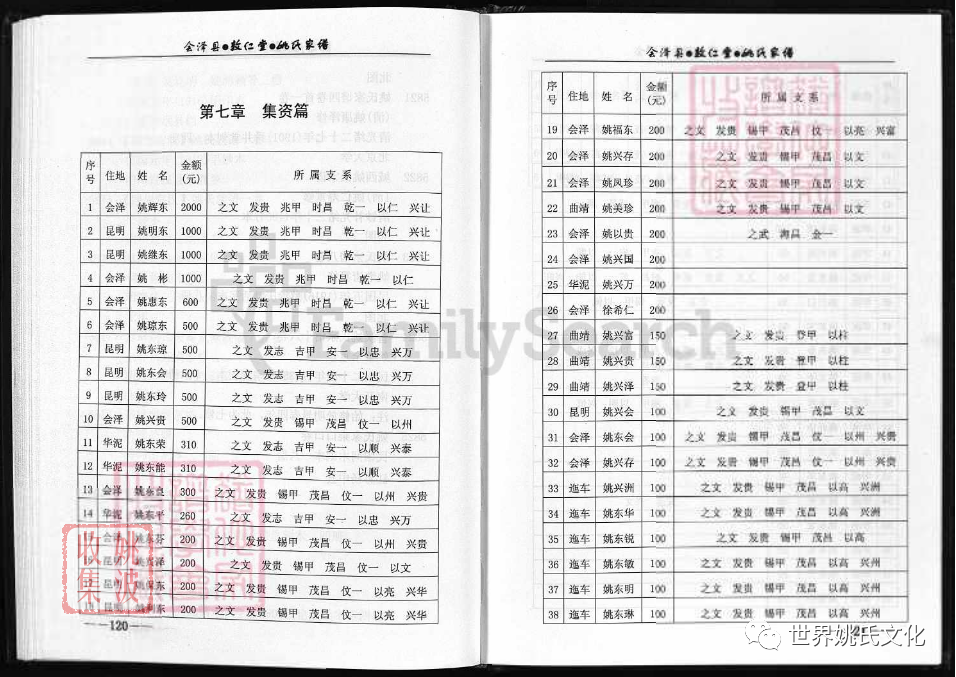 会泽县●敦仁堂●姚氏家谱
第七章 集资篇
序号 住地 姓名 金额(元) 所属支系
1 会泽 姚辉东 2000 之文 发贵 兆甲 时昌 乾一 以仁 兴让
2 昆明 姚明东 1000 之文 发贵 兆甲 时昌 乾一 以仁 兴让
3 昆明 姚继东 1000 之文 发贵 兆甲 时昌 乾一 以仁 兴让
4 会泽 姚彬 1000 之文 发贵 兆甲 时昌 乾一 以仁
5 会泽 姚惠东 600 之文 发贵 兆甲 时昌 乾一 以仁 兴让
6 会泽 姚琼东 500 之文 发贵 兆甲 时昌 乾一 以仁 兴让
7 昆明 姚东琼 500 之文 发志 吉甲 安一 以忠 兴万
8 昆明 姚东会 500 之文 发志 吉甲 安一 以忠 兴万
9 昆明 姚东玲 500 之文 发志 吉甲 安一 以忠 兴万
10 会泽 姚兴贵 500 之文 发贵 锡甲 茂昌 仪一 以州
11 华泥 姚东荣 310 之文 发志 吉甲 安一 以顺 兴泰
12 华泥 姚东能 310 之文 发志 吉甲 安一 以顺 兴泰
13 会泽 姚东良 300 之文 发贵 锡甲 茂昌 仪一 以州 兴贵
14 华泥 姚东平 260 之文 发志 吉甲 安一 以忠 兴万
会泽 姚东芬 200 之文 发贵 锡甲 茂昌 仪一 以州 兴贵
昆明 泽 200 之文 发贵 锡甲 茂昌 仪一 以文
昆明 东 200 之文 发贵 锡甲 茂昌 仪一 以亮 兴华
昆明 东 200 之文 发贵 锡甲 茂昌 仪一 以亮 兴华
120
姚波
收集
会泽县●敦仁堂●姚氏家谱
序号 住地 姓名 金额(元) 所属支系
19 会泽 姚福东 200 之文 发贵 锡甲 茂昌 仪一 以亮 兴富
20 会泽 姚兴存 200 之文 发贵 锡甲 茂昌 以文
21 会泽 姚凤珍 200 之文 发贵 锡甲 茂昌 以文
22 曲靖 姚美珍 200 之文 发贵 锡甲 茂昌 以文
23 会泽 姚以贵 200 之武 海昌 金一
24 会泽 姚兴国 200
25 华泥 姚兴万 200
26 会泽 徐希仁 200
27 曲靖 姚兴富 150 之文 发贵 登甲 以柱
28 曲靖 姚兴贵 150 之文 发贵 登甲 以柱
29 曲靖 姚兴泽 150 之文 发贵 登甲 以柱
30 昆明 姚兴会 100 之文 发贵 锡甲 茂昌 以文
31 会泽 姚东会 100 之文 发贵 锡甲 茂昌 仪一 以州 兴贵
32 会泽 姚兴存 100 之文 发贵 锡甲 茂昌 仪一 以州 兴贵
33 迤车 姚兴洲 100 之文 发贵 锡甲 茂昌 以高 兴洲
34 迤车 姚东华 100 之文 发贵 锡甲 茂昌 以高 兴洲
35 迤车 姚东锐 100 之文 发贵 锡甲 茂昌 以高
36 迤车 姚东敏 100 之文 发贵 锡甲 茂昌 以高 兴州
37 迤车 姚东明 100 之文 发贵 锡甲 茂昌 以高 兴州
38 迤车 姚东琳 100 之文 发贵 锡甲 茂昌 以高 兴州
FamilySearch
世界姚氏文化